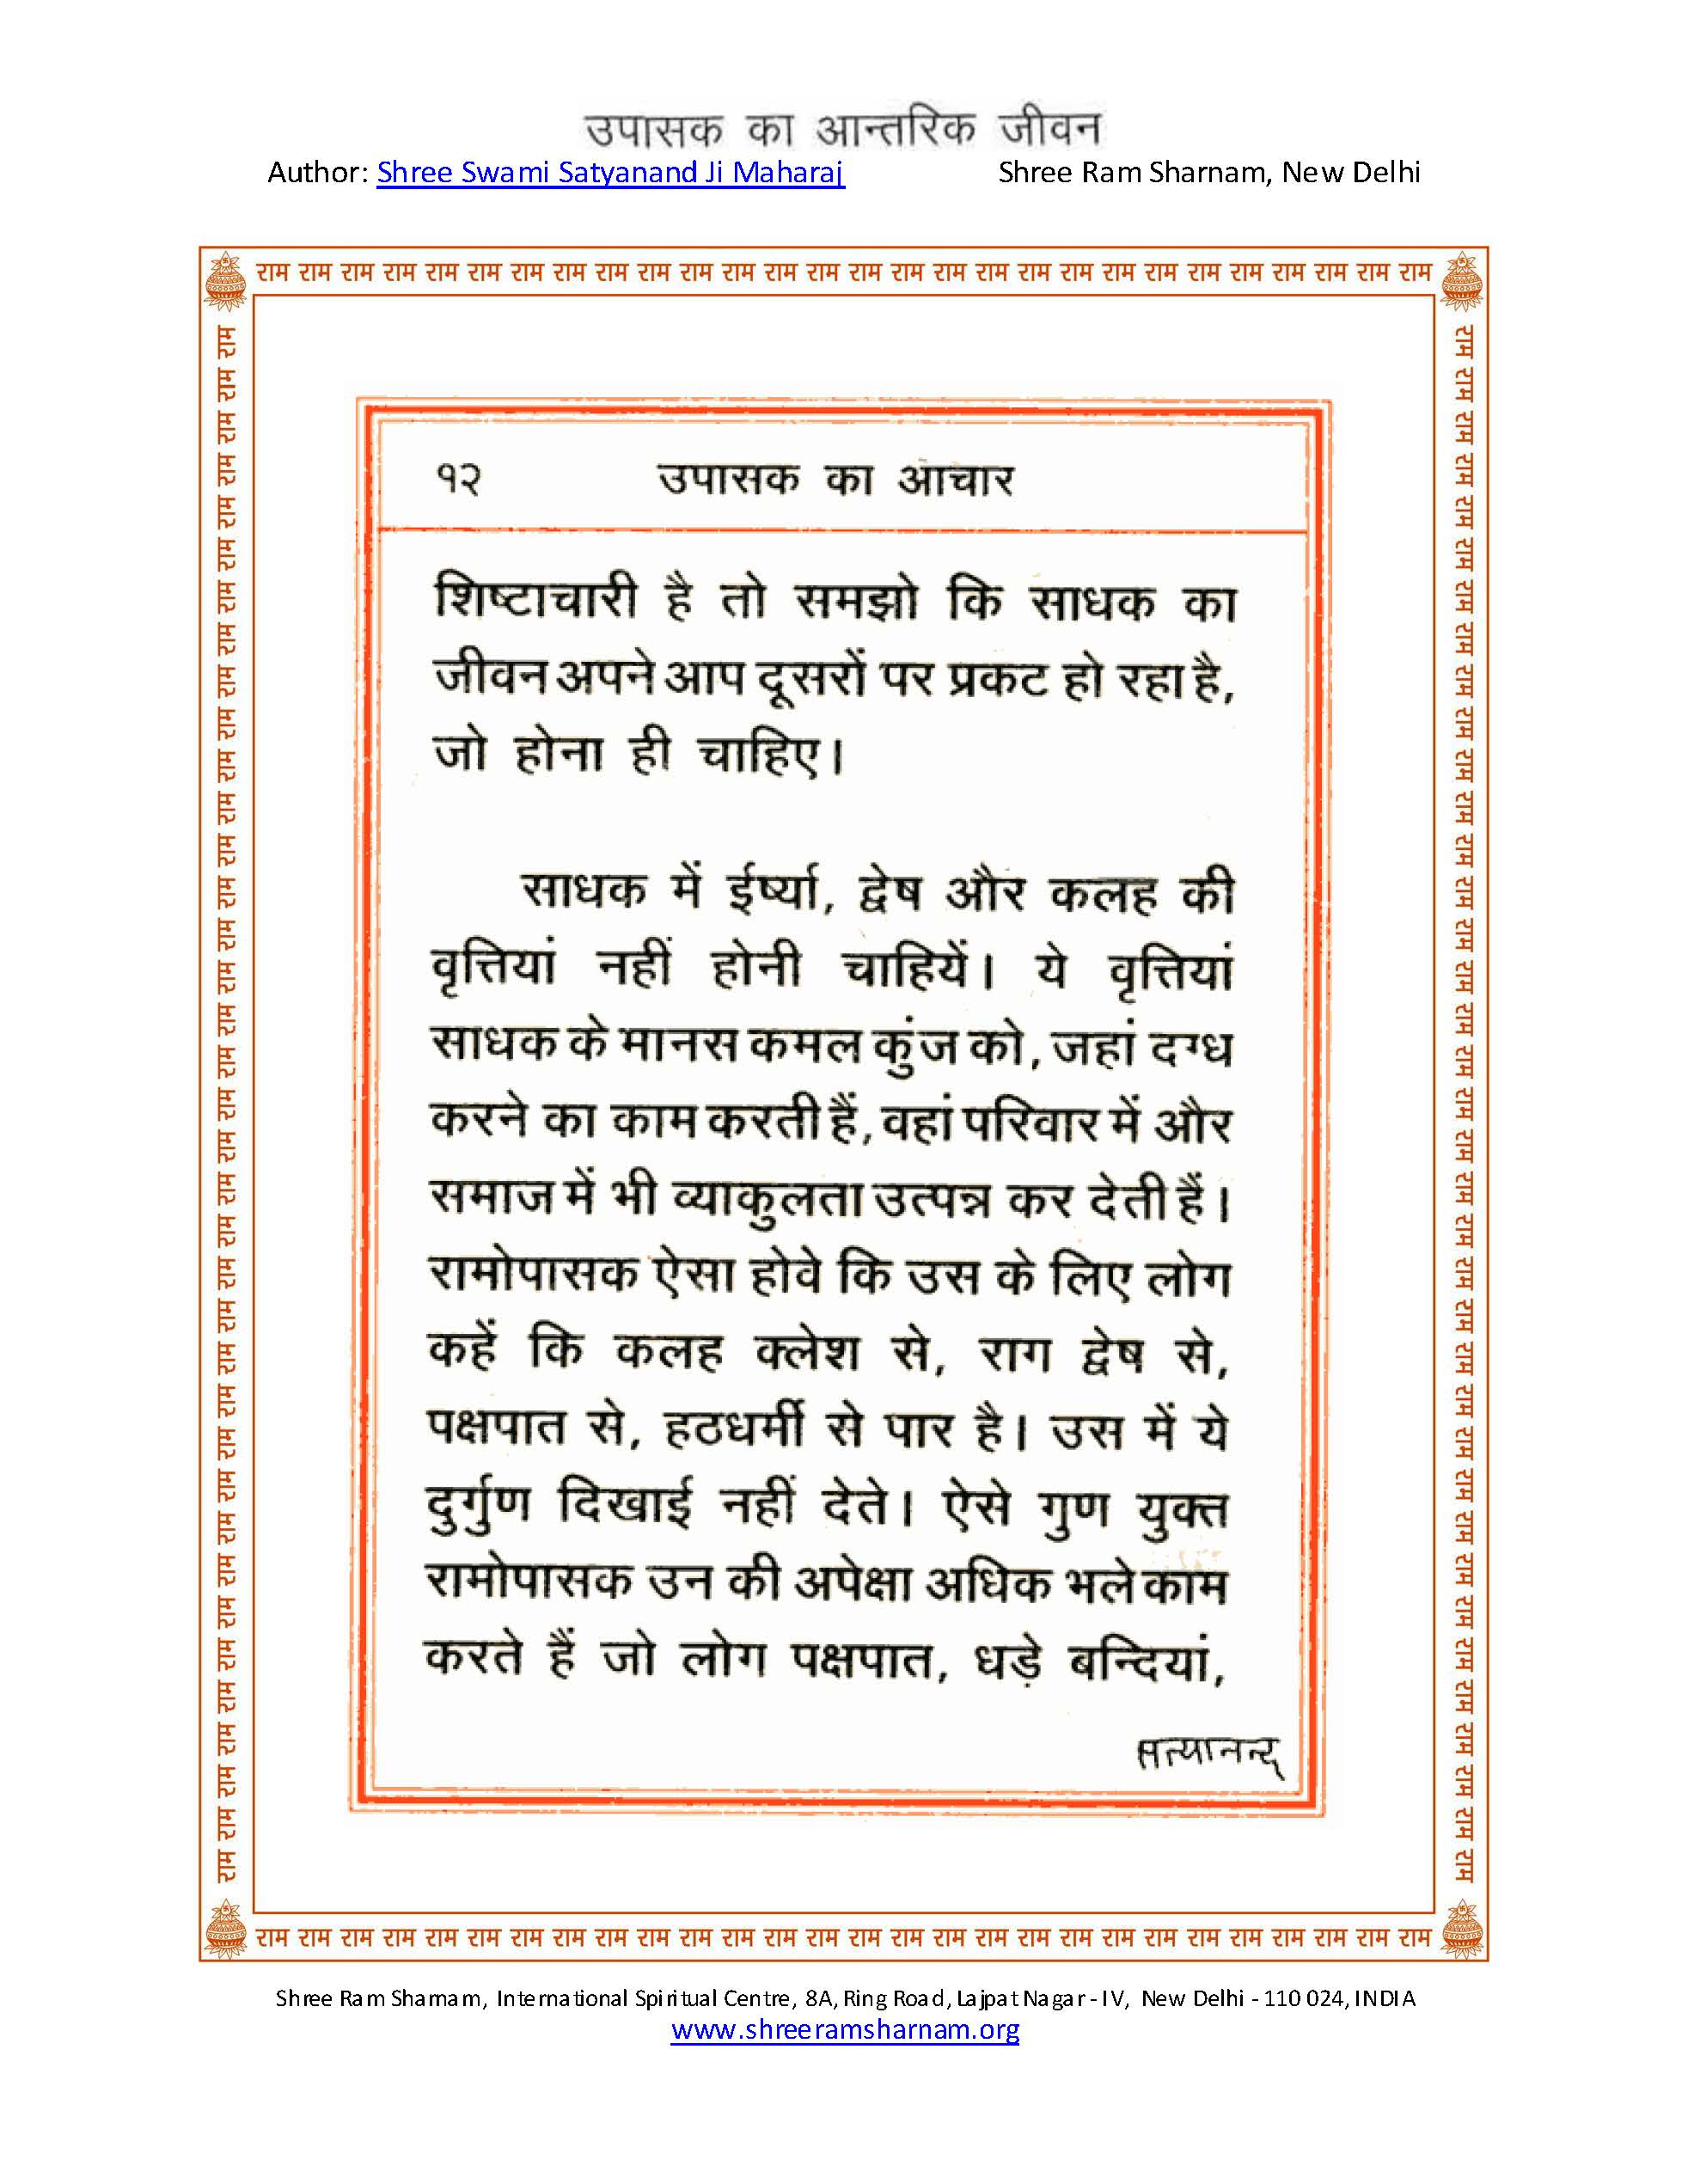 उपासक का आन्तरिक जीवन
Author: Shree Swami Satyanand Ji Maharaj Shree Ram Sharnam, New Delhi
राम राम राम राम राम राम राम राम राम राम राम राम राम राम राम राम राम राम राम राम राम राम राम राम राम राम राम राम
१२ उपासक का आचार
शिष्टाचारी है तो समझो कि साधक का
जीवन अपने आप दूसरों पर प्रकट हो रहा है,
जो होना ही चाहिए।
साधक में ईर्ष्या, द्वेष और कलह की
वृत्तियां नहीं होनी चाहियें। ये वृत्तियां
साधक के मानस कमल कुंज को, जहां दग्ध
करने का काम करती हैं, वहां परिवार में और
समाज में भी व्याकुलता उत्पन्न कर देती हैं।
रामोपासक ऐसा होवे कि उस के लिए लोग
कहें कि कलह क्लेश से, राग द्वेष से,
पक्षपात से, हठधर्मी से पार है। उस में ये
दुर्गुण दिखाई नहीं देते। ऐसे गुण युक्त
रामोपासक उन की अपेक्षा अधिक भले काम
करते हैं जो लोग पक्षपात, धड़े बन्दियां,
सत्यानन्द
राम राम राम राम राम राम राम राम राम राम राम राम राम राम राम राम राम राम राम राम राम राम राम राम राम राम राम राम
Shree Ram Sharnam, International Spiritual Centre, 8A, Ring Road, Lajpat Nagar - IV, New Delhi - 110 024, INDIA
www.shreeramsharnam.org